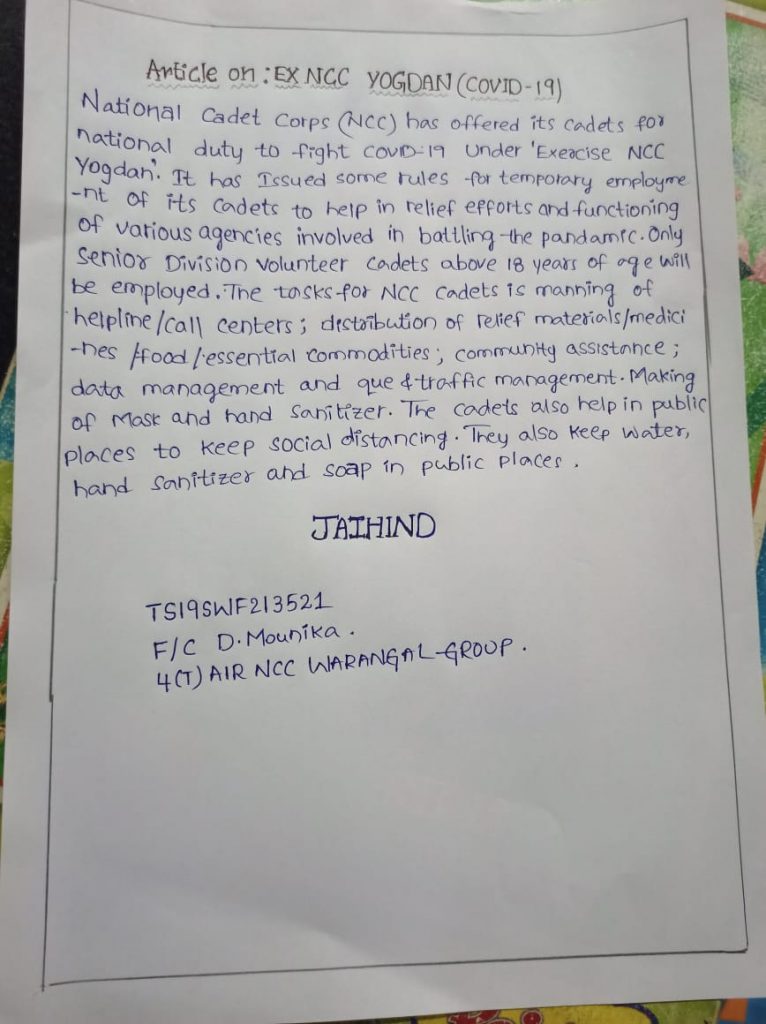 Article on : EX NCC YOGDAN (COVID-19)
National Cadet Corps (NCC) has offered its cadets for
national duty to fight COVID-19 Under 'Exercise NCC
Yogdan'. It has Issued some rules for temporary employme
-nt of its Cadets to help in relief efforts and functioning
of various agencies involved in battling the pandamic. Only
Senior Division Volunteer Cadets above 18 years of age will
be employed. The tasks for NCC Cadets is manning of
helpline/call centers; distribution of relief materials/medici
-nes /food/essential commodities; community assistance;
data management and que & traffic management. Making
of Mask and hand Sanitizer. The cadets also help in public
places to keep social distancing. They also keep water,
hand Sanitizer and soap in public places.
JAIHIND
TS19SWF213521
F/C D. Mounika.
4(T) AIR NCC WARANGAL-GROUP.